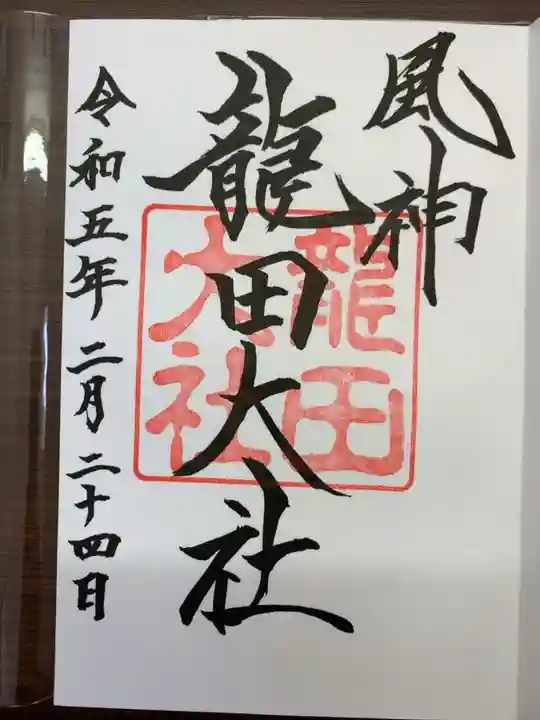 風神
龍田大社
龍田
大社
令和五年二月二十四日